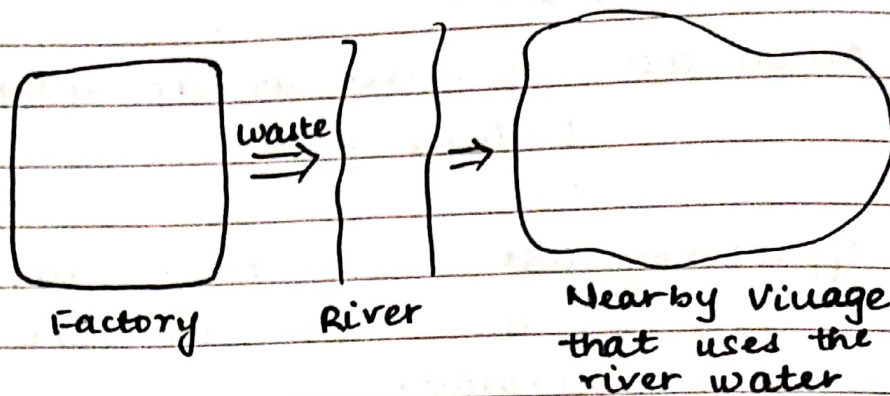 waste
Factory
River
Nearby Village
that uses the
river water